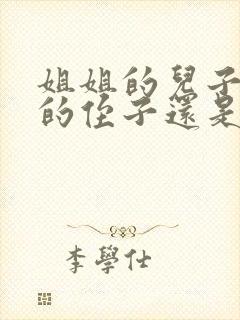 姐姐的兒子
的侄子還是
李學仕